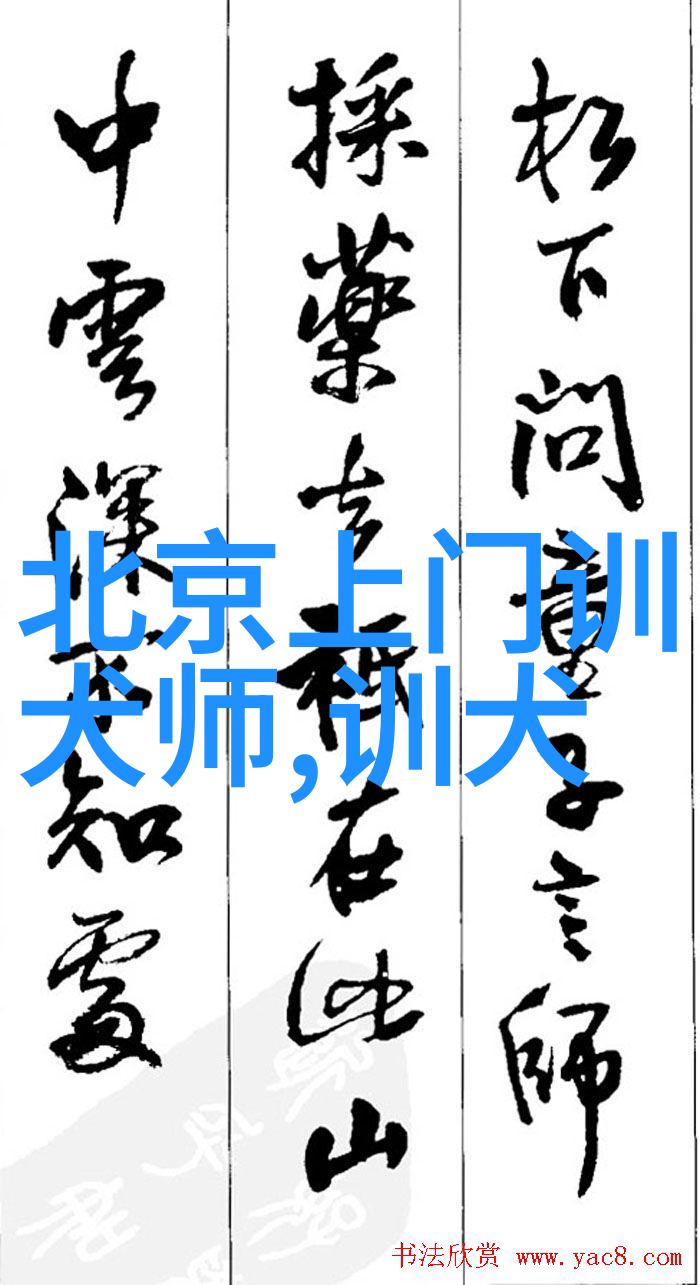 松下问童子言師
採藥去祗在此山
中雲深不知處
北京上门训
犬师,训犬
书法欣赏 www.yac8.com